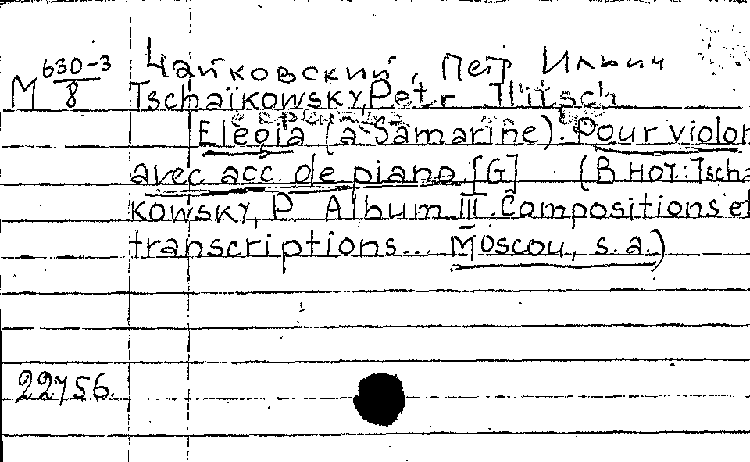 Чайковский, Петр Ильич
М 630-3/8
Tschaïkowsky, Petr Ilitsch
Elegia (a Samarine). Pour violon
avec acc. de piano. [G] (В нот.: Tscha
kowsky, P. Album III. Compositions et
transcriptions... Moscou, s.a.)
22756.